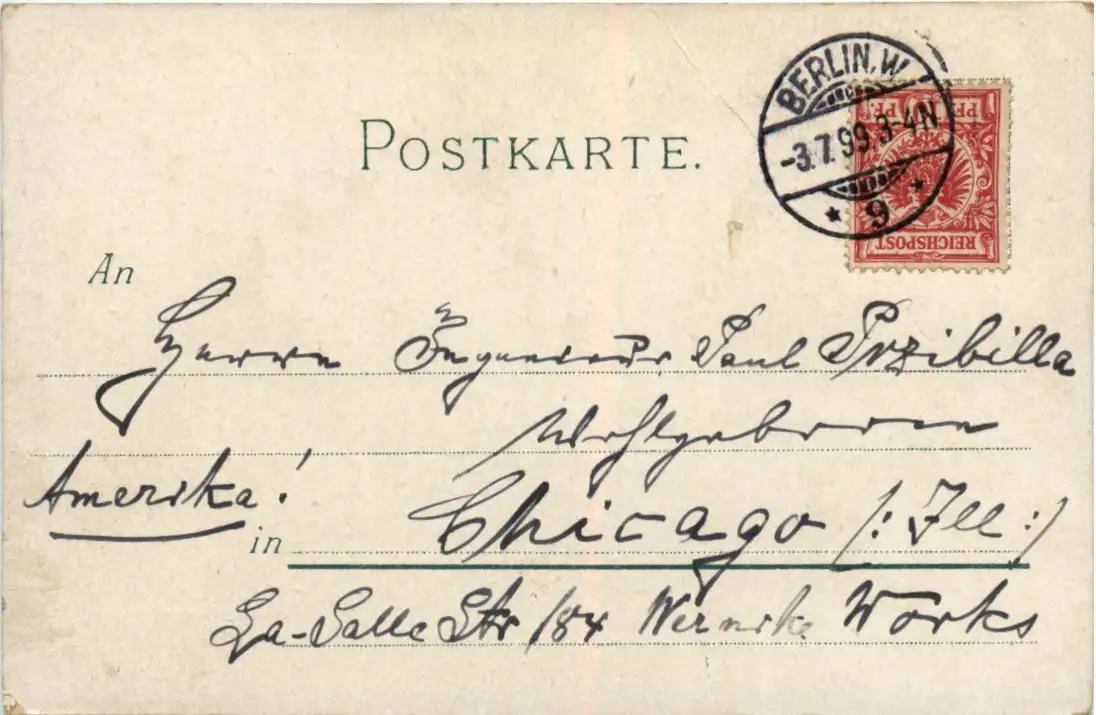 POSTKARTE.
BERLIN. W.
-3.7.99.3-4N
9
10 PF. PF.
REICHSPOST
An
Herrn Ingenieur Paul Przibilla
Wohlgeboren
Amerika!
in Chicago /: Ill :/
La-Salle Str 184 Wernike Works